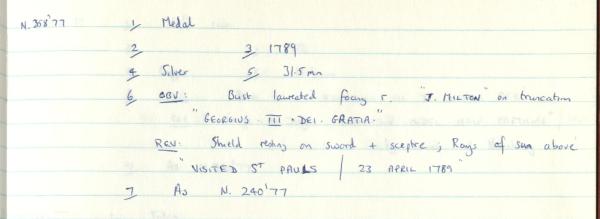 N.358'77 1/ Medal
2/ 3/ 1789
4/ Silver 5/ 31.5 mm
6/ OBV: Bust laureated facing r. "J. MILTON" on truncation
"GEORGIUS · III · DEI · GRATIA ·"
REV: Shield resting on sword + sceptre ; Rays of sun above
"VISITED ST PAULS / 23 APRIL 1789"
7/ As N. 240'77